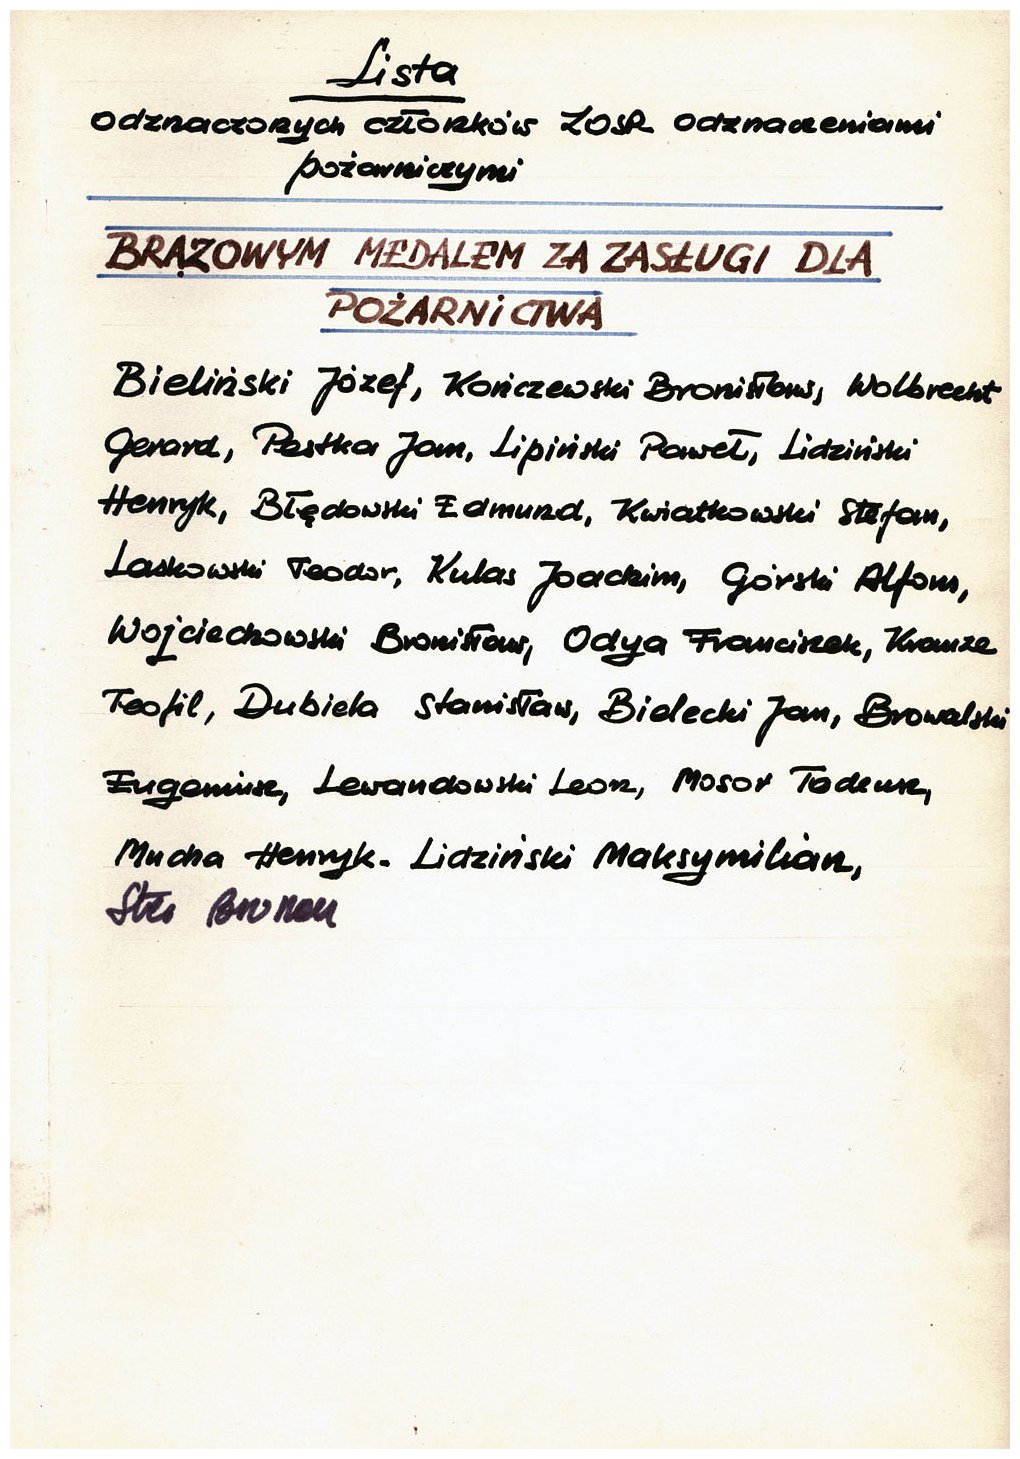 Lista
odznaczonych członków ZOSP odznaczeniami
pożarniczymi
BRĄZOWYM MEDALEM ZA ZASŁUGI DLA
POŻARNICTWA
Bieliński Józef, Kończewski Bronisław, Wolbrecht
Gerard, Pestka Jan, Lipiński Paweł, Lidziński
Henryk, Błędowski Edmund, Kwiatkowski Stefan,
Laskowski Teodor, Kulas Joachim, Górski Alfons,
Wojciechowski Bronisław, Odya Franciszek, Krauze
Teofil, Dubiela Stanisław, Bielecki Jan, Browalski
Eugeniusz, Lewandowski Leon, Mosor Tadeusz,
Mucha Henryk. Lidziński Maksymilian,